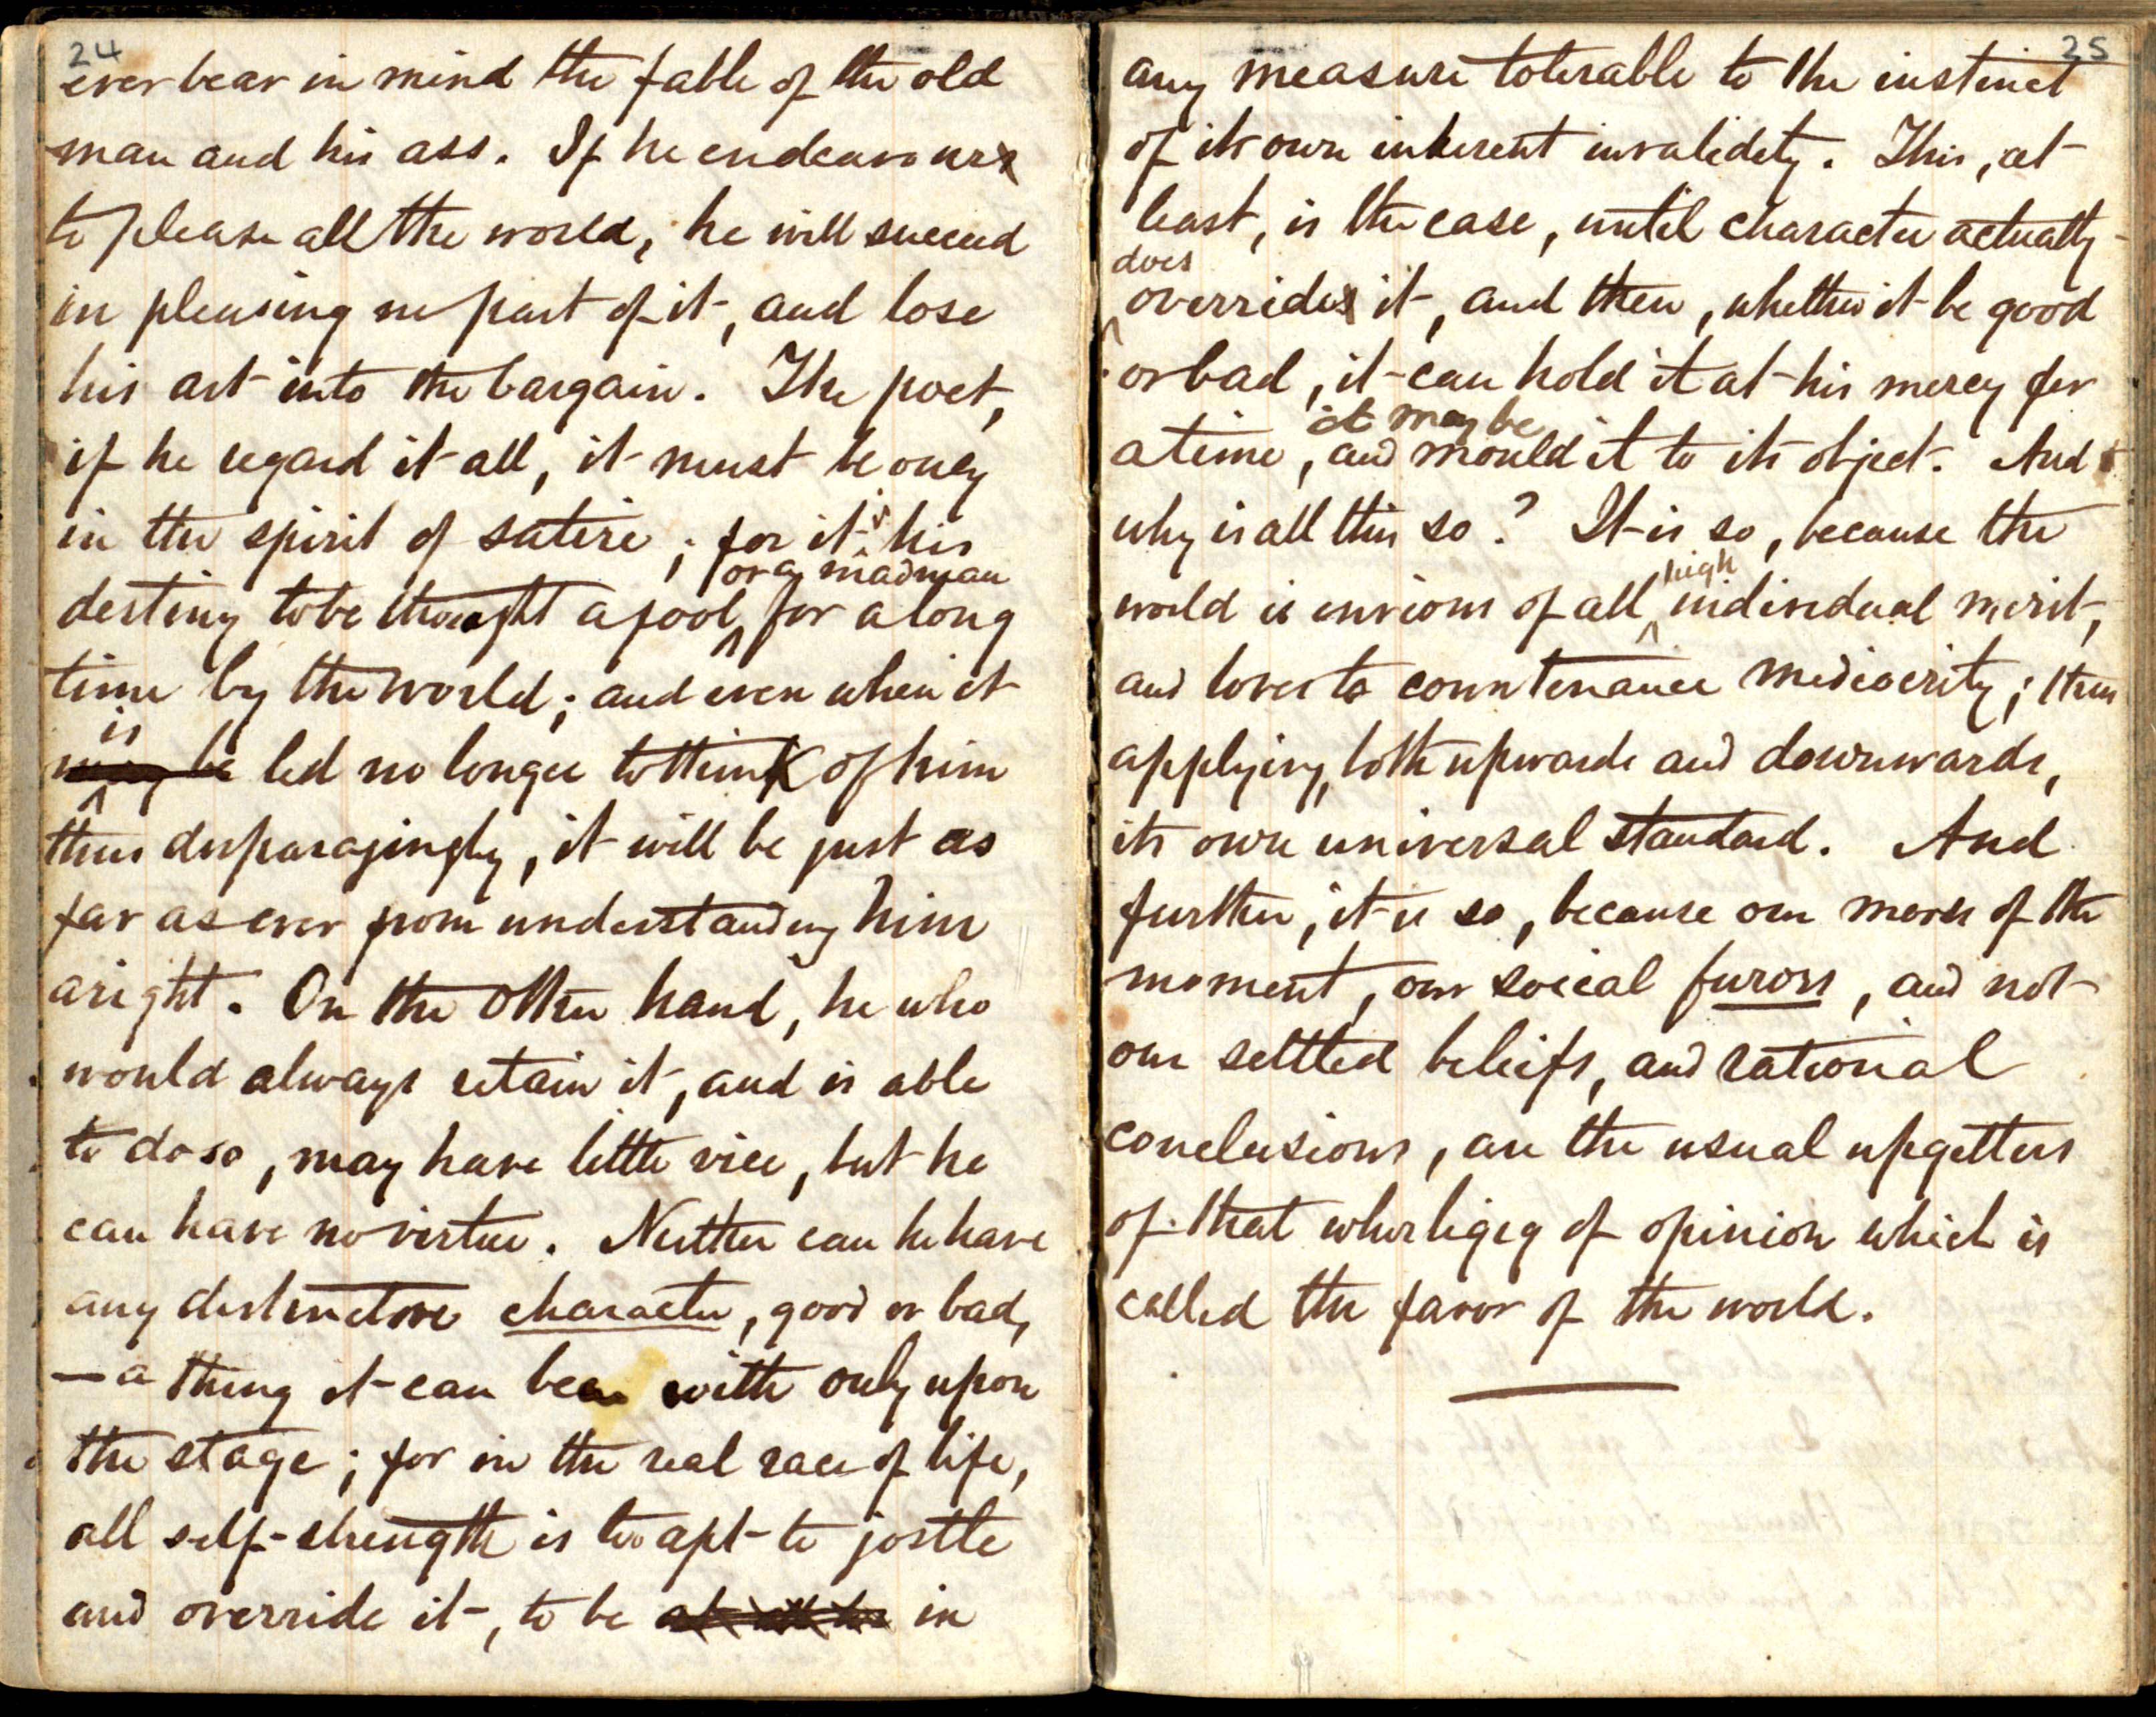 24
ever bear in mind the fable of the old
man and his ass. If he endeavours
to please all the world, he will succeed
in pleasing no part of it, and lose
his art into the bargain. The poet,
if he regard it all, it must be only
in the spirit of satire; for it is his
destiny to be thought a fool, or a madman for a long
time by the world; and even when it
is may be led no longer to think of him
thus disparagingly, it will be just as
far as ever from understanding him
aright. On the other hand, he who
would always retain it, and is able
to do so, may have little vice, but he
can have no virtue. Neither can he have
any distinctive character, good or bad,
—a thing it can bear with only upon
the stage; for in the real race of life,
all self-strength is too apt to jostle
and override it, to be in
25
any measure tolerable to the instinct
of its own inherent invalidity. This, at
least, is the case, until character actually
does override it, and then, whether it be good
or bad, it can hold it at his mercy for
a time, it may be and mould it to its object. And
why is all this so? It is so, because the
world is envious of all high individual merit,
and loves to countenance mediocrity; thus
applying, both upwards and downwards,
its own universal standard. And
further, it is so, because our moods of the
moment, our social furors, and not
our settled beliefs, and rational
conclusions, are the usual upgetters
of that whirligig of opinion which is
called the favor of the world.